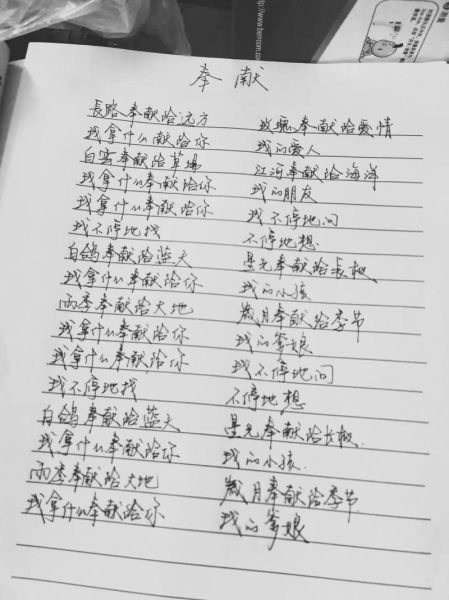 http://www.beencom.com
奉献
長路奉献给远方 玫瑰奉献给爱情
我拿什么献给你 我的爱人
白云奉献给草场 江河奉献给海洋
我拿什么奉献给你 我的朋友
我拿什么奉献给你 我不停地问
我不停地找 不停地想
白鸽奉献给蓝天 星光奉献给长夜
我拿什么奉献给你 我的小孩
雨季奉献给大地 歲月奉献给季节
我拿什么奉献给你 我的爹娘
我拿什么奉献给你 我不停地问
我不停地找 不停地想
白鸽奉献给蓝天 星光奉献给长夜.
我拿什么奉献给你 我的小孩.
雨季奉献给大地 歲月奉献给季节
我拿什么奉献给你 我的爹娘